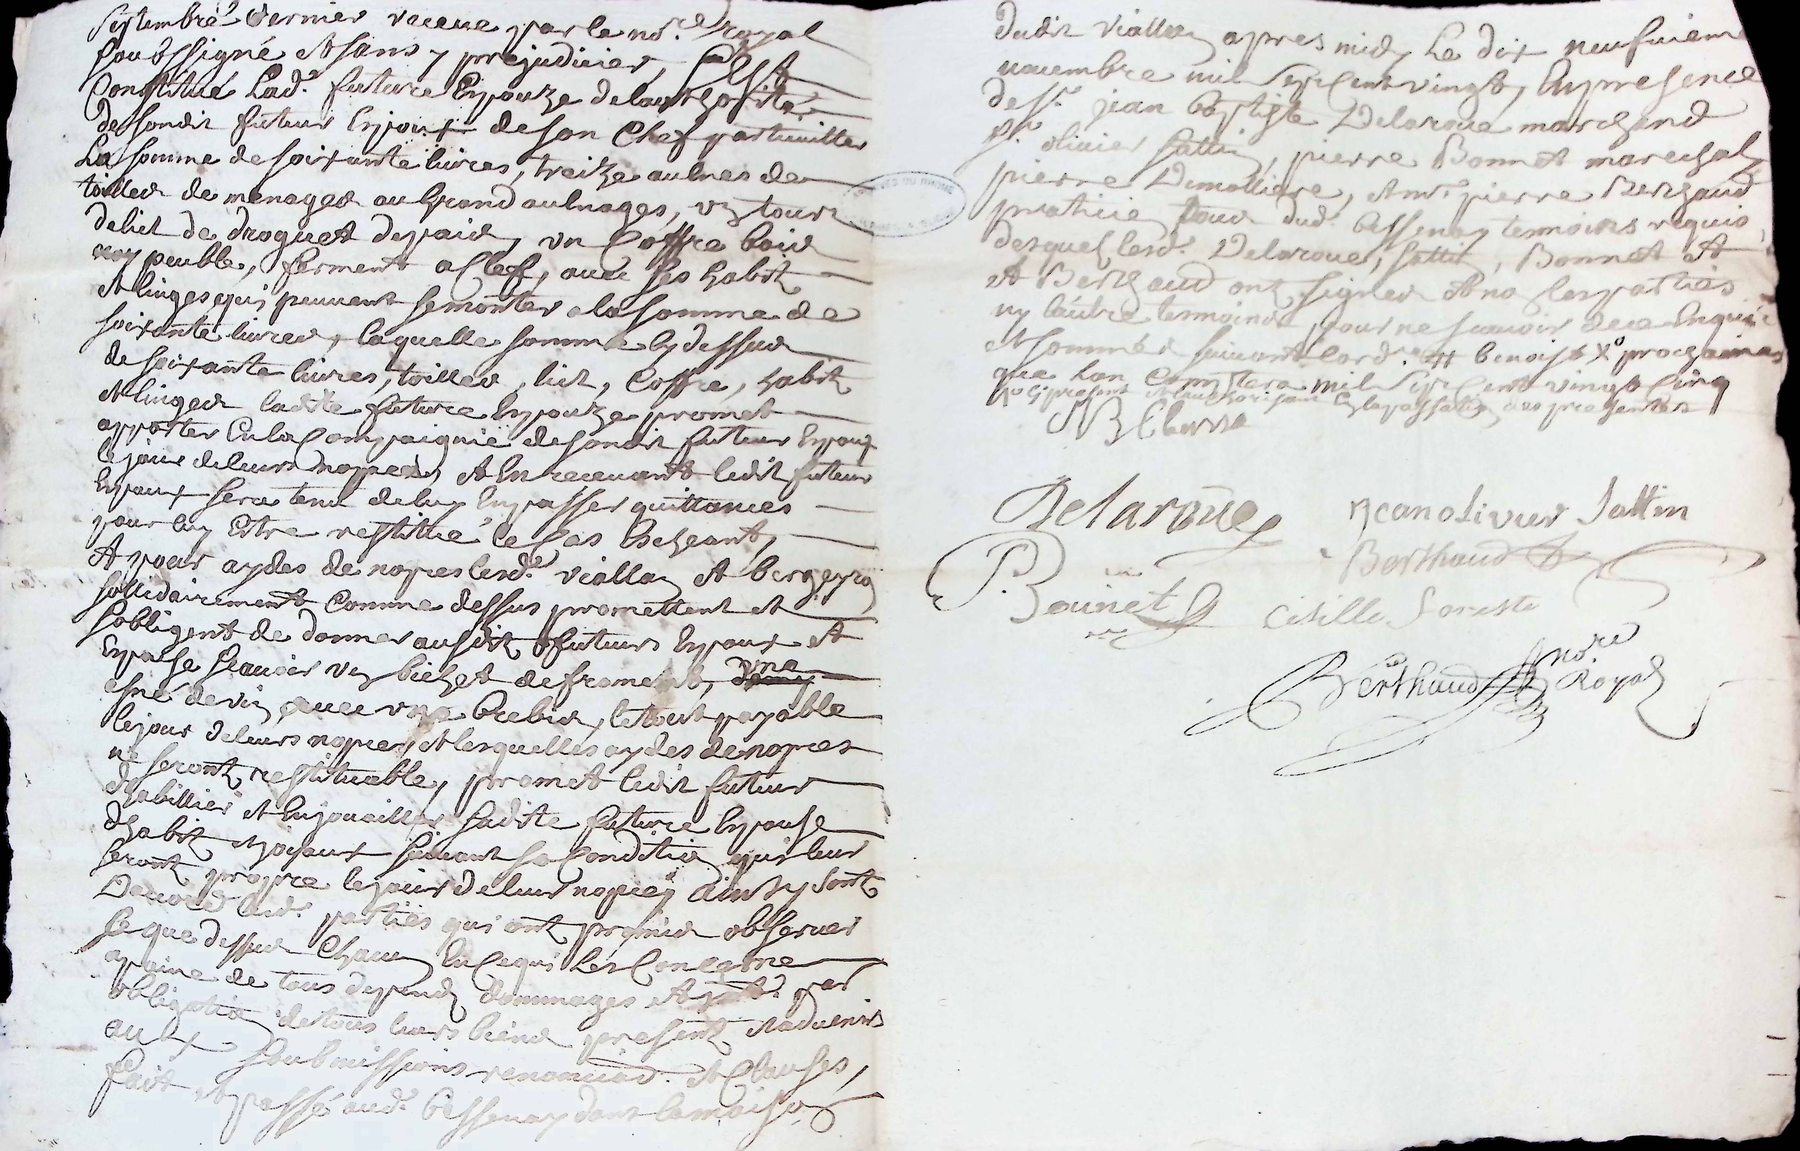 septembre dernier receue par le no.re royal
soubssigné et sans y prejudicier, s'est
constitué lad.e future espouze de l'authorité
de sondit futeur espoux de son chef particuillier
la somme de soixante livres, treize aulnes de
toilles de menages au grand aulnages, un tour
de lict de droguet de paÿs, un coffre bois
noy peuble, fermant a clef, avec ses habit
et linges qui peuvent se monter a la somme de
soixante livres, laquelle somme cy dessus
de soixante livres, toilles, lict, coffre, habit
et linges ladite future espouze promet
apporter en la compaignie de sondit futeur espoux
le jour de leurs nopces, et en recevant ledit futeur
espoux sera tenu de luy en passer quittances
pour luy estre restitué le cas escheant,
et pour aydes de nopces lesd. viallay et bergeyron
sollidairement comme dessus promettent et
s'obligent de donner ausdit futeurs espoux et
espouse scavoir un bichet de froment, une
asné de vin avec une brebis, le tout payable
le jour de leurs nopces, et lesquelles aydes de nopces
ne seront restituable, promet ledit futeur
d'habillier et enjouailler sadite future espouse
d'habit et joyaux suivant sa condition qui leur
seront propre le jour de leur nopces ainsy sont
d'accord lesd. parties qui ont promis observer
ce que dessus chacun en ce qui les concerne
a peine de tous despends dommages et par
obligation de tous leurs biens present et advenir
aux soubmissions renonciaō. et clauses,
fait et passé aud. bessenay dans la maison
dudit viallay apres midy le dix neufuieme
novembre mil sept cent vingt, en presence
de s.r jean baptiste Delaroue marchand
s.r olivier sattin, pierre Bonnet marechal
pierre Demolliere, et m.e pierre Berthaud
praticien tous dud. bessenay temoins requis
desquels lesd. Delaroue, sattin, Bonnet et
et Berthaud ont signer et no les parties
ny l'autre temoins, pour ne scavoir de ce enquis
et sommés suivant l'ord.e benoist prochaines
que l'on comptera mil sept cent vingt cinq
present
Delaroüe Jean olivier Sattin
P. Bounet Berthaud
Berthaud no.re Royal